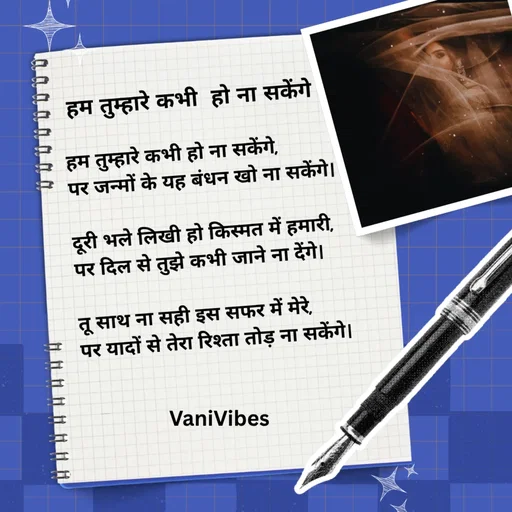 हम तुम्हारे कभी हो ना सकेंगे
हम तुम्हारे कभी हो ना सकेंगे,
पर जन्मों के यह बंधन खो ना सकेंगे।
दूरी भले लिखी हो किस्मत में हमारी,
पर दिल से तुझे कभी जाने ना देंगे।
तू साथ ना सही इस सफर में मेरे,
पर यादों से तेरा रिश्ता तोड़ ना सकेंगे।
VaniVibes